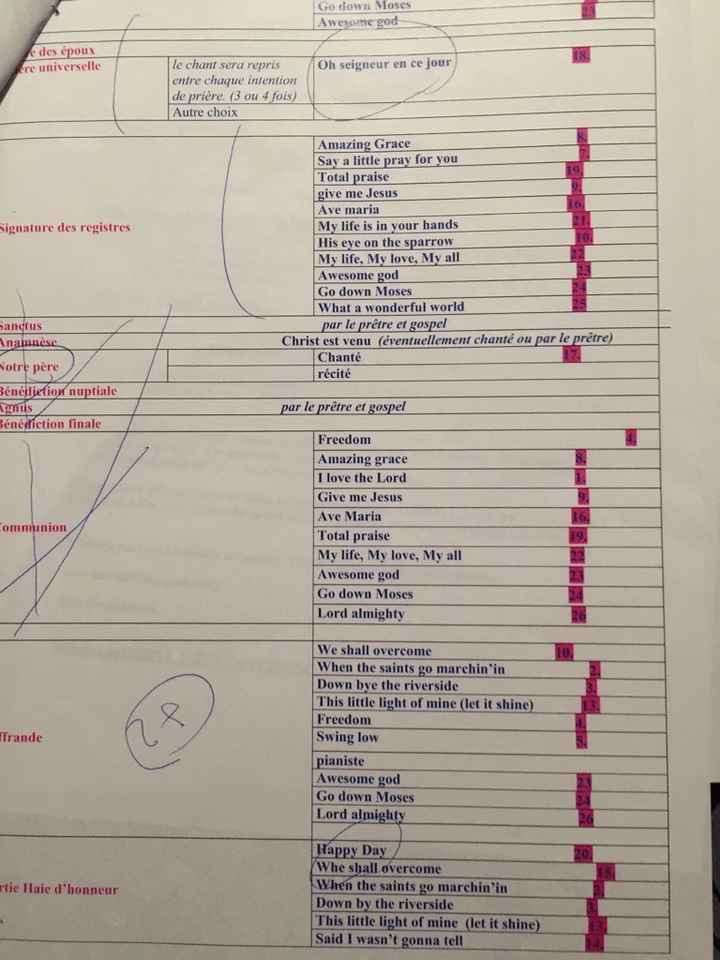 Go down Moses 23
Awesome god
e des époux
ère universelle le chant sera repris Oh seigneur en ce jour 18.
entre chaque intention
de prière. (3 ou 4 fois)
Autre choix
Amazing Grace 8.
Say a little pray for you 7.
Total praise 19.
give me Jesus 9.
Ave maria 16.
Signature des registres My life is in your hands 21.
His eye on the sparrow 10.
My life, My love, My all 22
Awesome god 23
Go down Moses 24
What a wonderful world 25
Sanctus par le prêtre et gospel
Anamnèse Christ est venu (éventuellement chanté ou par le prêtre)
Notre père Chanté 17.
récité
Bénédiction nuptiale
Agnus par le prêtre et gospel
Bénédiction finale
Freedom 4.
Amazing grace 8.
I love the Lord 1.
Give me Jesus 9.
Ave Maria 16.
ommunion Total praise 19.
My life, My love, My all 22
Awesome god 23
Go down Moses 24
Lord almighty 26
We shall overcome 10.
When the saints go marchin'in 2.
Down bye the riverside 3.
This little light of mine (let it shine) 13.
Freedom 4.
ffrande Swing low 5.
pianiste
Awesome god 23
Go down Moses 24
Lord almighty 26
Happy Day 20.
Whe shall overcome 15.
rtie Haie d'honneur When the saints go marchin'in 2.
Down by the riverside 3.
This little light of mine (let it shine) 13.
Said I wasn't gonna tell 14.